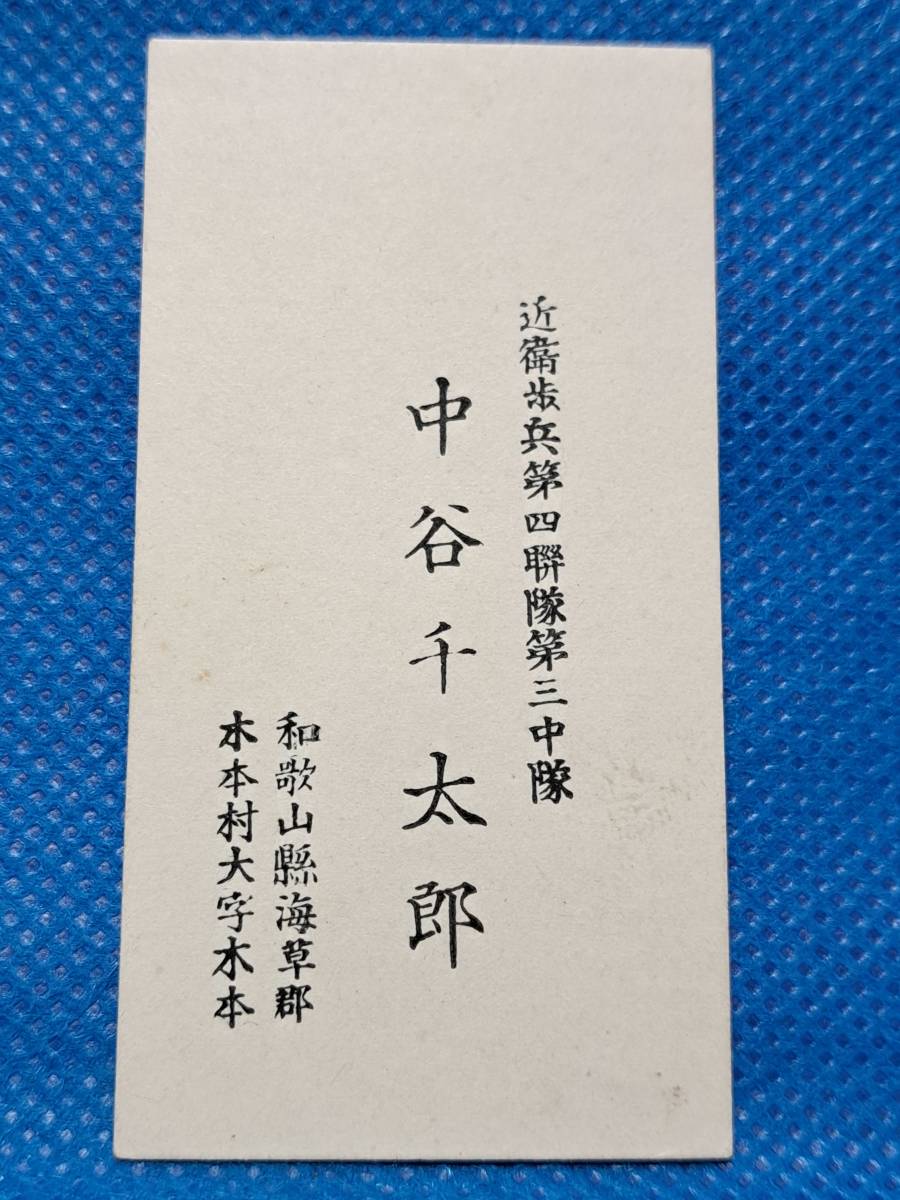 近衛歩兵第四聯隊第三中隊
中谷千太郎
和歌山縣海草郡
木本村大字木本